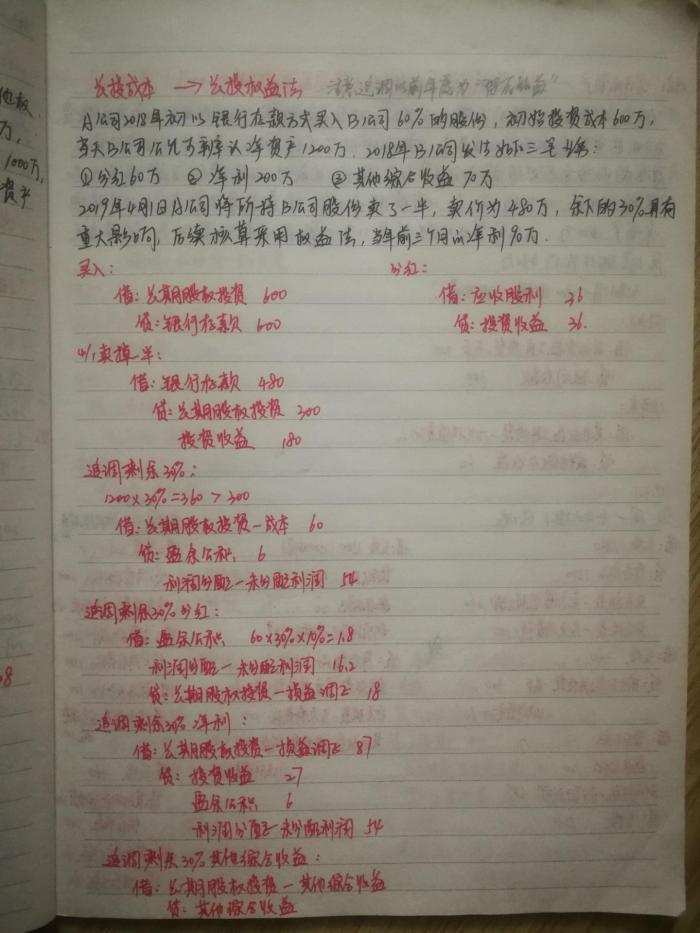 长投成本 → 长投权益法 注意追调以前年度为“留存收益”
A公司2018年初以银行存款方式买入B公司60%的股份，初始投资成本600万，
当天B公司公允可辨认净资产1200万．2018年B公司发生如下三笔业务：
①分红60万 ②净利200万 ③其他综合收益70万
2019年4月1日A公司将所持B公司股份卖了一半，卖价为480万，余下的30%具有
重大影响，后续核算采用权益法，当年前三个月的净利90万．
买入： 分红：
借：长期股权投资 600 借：应收股利 36
贷：银行存款 600 贷：投资收益 36.
4/1卖掉一半：
借：银行存款 480
贷：长期股权投资 300
投资收益 180
追调剩余30%：
1200×30%=360 > 300
借：长期股权投资－成本 60
贷：盈余公积 6
利润分配－未分配利润 54
追调剩余30%分红：
借：盈余公积 60×30%×10%=1.8
利润分配－未分配利润 16.2
贷：长期股权投资－损益调正 18
追调剩余30%净利：
借：长期股权投资－损益调正 87
贷：投资收益 27
盈余公积 6
利润分配－未分配利润 54
追调剩余30%其他综合收益：
借：长期股权投资－其他综合收益
贷：其他综合收益
他权
万，
1000万，
资产
8